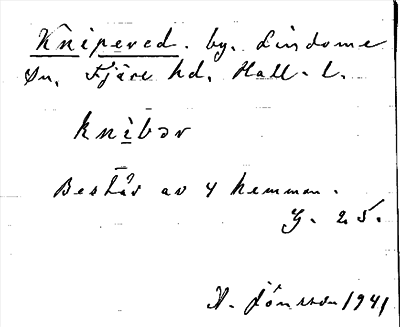 Knipered. by. Lindome
sn, Fjäre hd, Hall. l.
knìbər
Består av 4 hemman.
G. 25.
A. Jönsson 1941